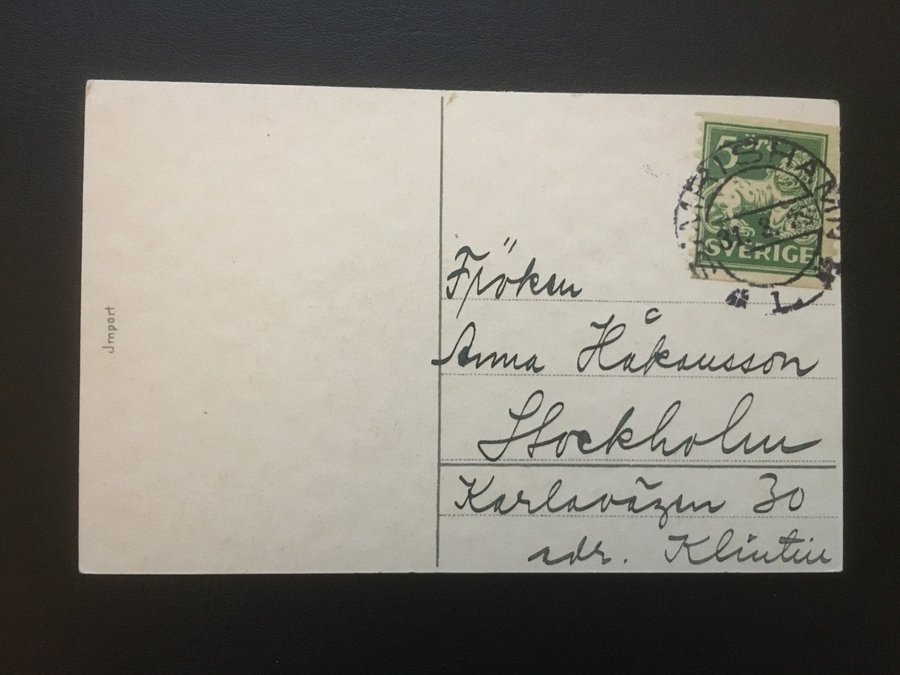 Jmport
5 ÖRE
SVERIGE
Fröken
Anna Håkansson
Stockholm
Karlavägen 30
adr. Klintin